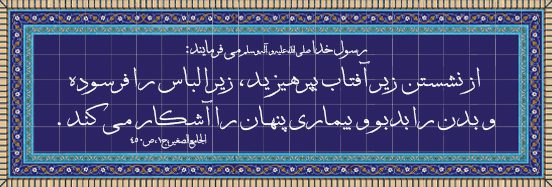 رسول خدا صلی الله علیه و آله و سلم می فرمایند:
از نشستن زیر آفتاب بپرهیزید، زیرا لباس را فرسوده
و بدن را بدبو و بیماری پنهان را آشکار می کند.
الجامع الصغیر، ج۱، ص۴۵۰